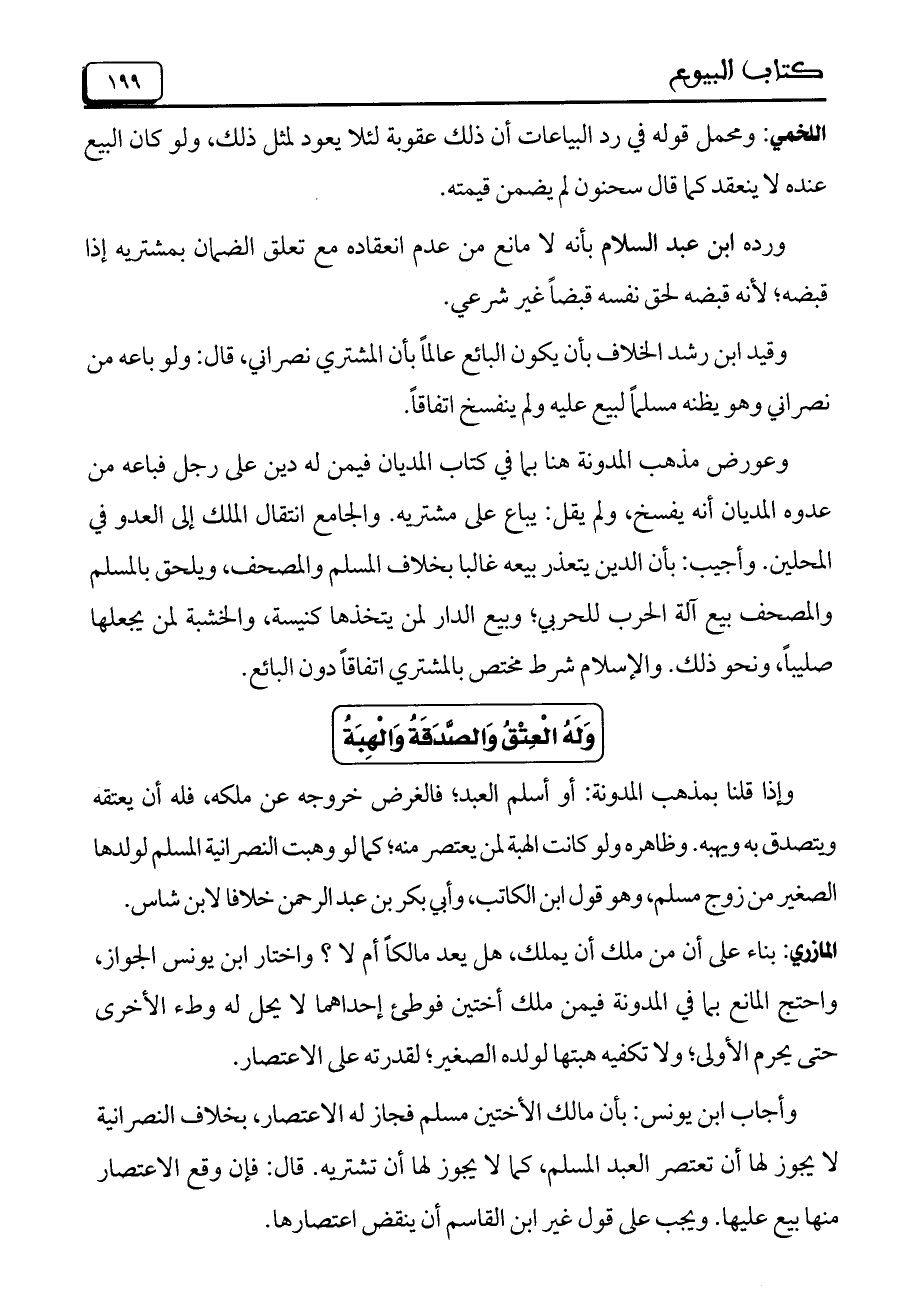 كتاب البيوع
١٩٩
اللخمي: ومحمل قوله في رد البياعات أن ذلك عقوبة لئلا يعود لمثل ذلك، ولو كان البيع
عنده لا ينعقد كما قال سحنون لم يضمن قيمته.
ورده ابن عبد السلام بأنه لا مانع من عدم انعقاده مع تعلق الضمان بمشتريه إذا
قبضه؛ لأنه قبضه لحق نفسه قبضاً غير شرعي.
وقيد ابن رشد الخلاف بأن يكون البائع عالماً بأن المشتري نصراني، قال: ولو باعه من
نصراني وهو يظنه مسلماً لبيع عليه ولم ينفسخ اتفاقاً.
وعورض مذهب المدونة هنا بما في كتاب المديان فيمن له دين على رجل فباعه من
عدوه المديان أنه يفسخ، ولم يقل: يباع على مشتريه. والجامع انتقال الملك إلى العدو في
المحلين. وأجيب: بأن الدين يتعذر بيعه غالبا بخلاف المسلم والمصحف، ويلحق بالمسلم
والمصحف بيع آلة الحرب للحربي؛ وبيع الدار لمن يتخذها كنيسة، والخشبة لمن يجعلها
صليباً، ونحو ذلك. والإسلام شرط مختص بالمشتري اتفاقاً دون البائع.
وَلَهُ الْعِتْقُ وَالصَّدَقَةُ وَالْهِبَةُ
وإذا قلنا بمذهب المدونة: أو أسلم العبد؛ فالغرض خروجه عن ملكه، فله أن يعتقه
ويتصدق به ويهبه. وظاهره ولو كانت الهبة لمن يعتصر منه؛ كما لو وهبت النصرانية المسلم لولدها
الصغير من زوج مسلم، وهو قول ابن الكاتب، وأبي بكر بن عبد الرحمن خلافا لابن شاس.
المازري: بناء على أن من ملك أن يملك، هل يعد مالكاً أم لا ؟ واختار ابن يونس الجواز،
واحتج المانع بما في المدونة فيمن ملك أختين فوطئ إحداهما لا يحل له وطء الأخرى
حتى يحرم الأولى؛ ولا تكفيه هبتها لولده الصغير؛ لقدرته على الاعتصار.
وأجاب ابن يونس: بأن مالك الأختين مسلم فجاز له الاعتصار، بخلاف النصرانية
لا يجوز لها أن تعتصر العبد المسلم، كما لا يجوز لها أن تشتريه. قال: فإن وقع الاعتصار
منها بيع عليها. ويجب على قول غير ابن القاسم أن ينقض اعتصارها.